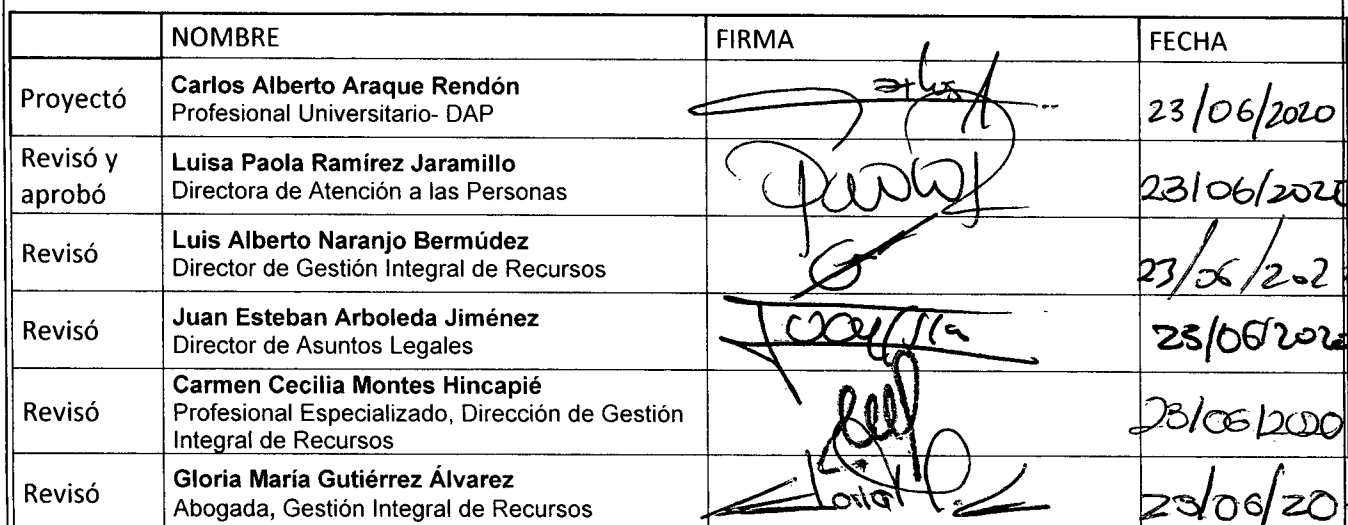 NOMBRE FIRMA FECHA
Proyectó Carlos Alberto Araque Rendón
Profesional Universitario- DAP
23/06/2020
Revisó y aprobó
Luisa Paola Ramírez Jaramillo
Directora de Atención a las Personas
Paola
23/06/202
Revisó
Luis Alberto Naranjo Bermúdez
Director de Gestión Integral de Recursos
23/06/202
Revisó
Juan Esteban Arboleda Jiménez
Director de Asuntos Legales
23/06/202
Revisó
Carmen Cecilia Montes Hincapié
Profesional Especializado, Dirección de Gestión
Integral de Recursos
23/06/2020
Revisó
Gloria María Gutiérrez Álvarez
Abogada, Gestión Integral de Recursos
23/06/20